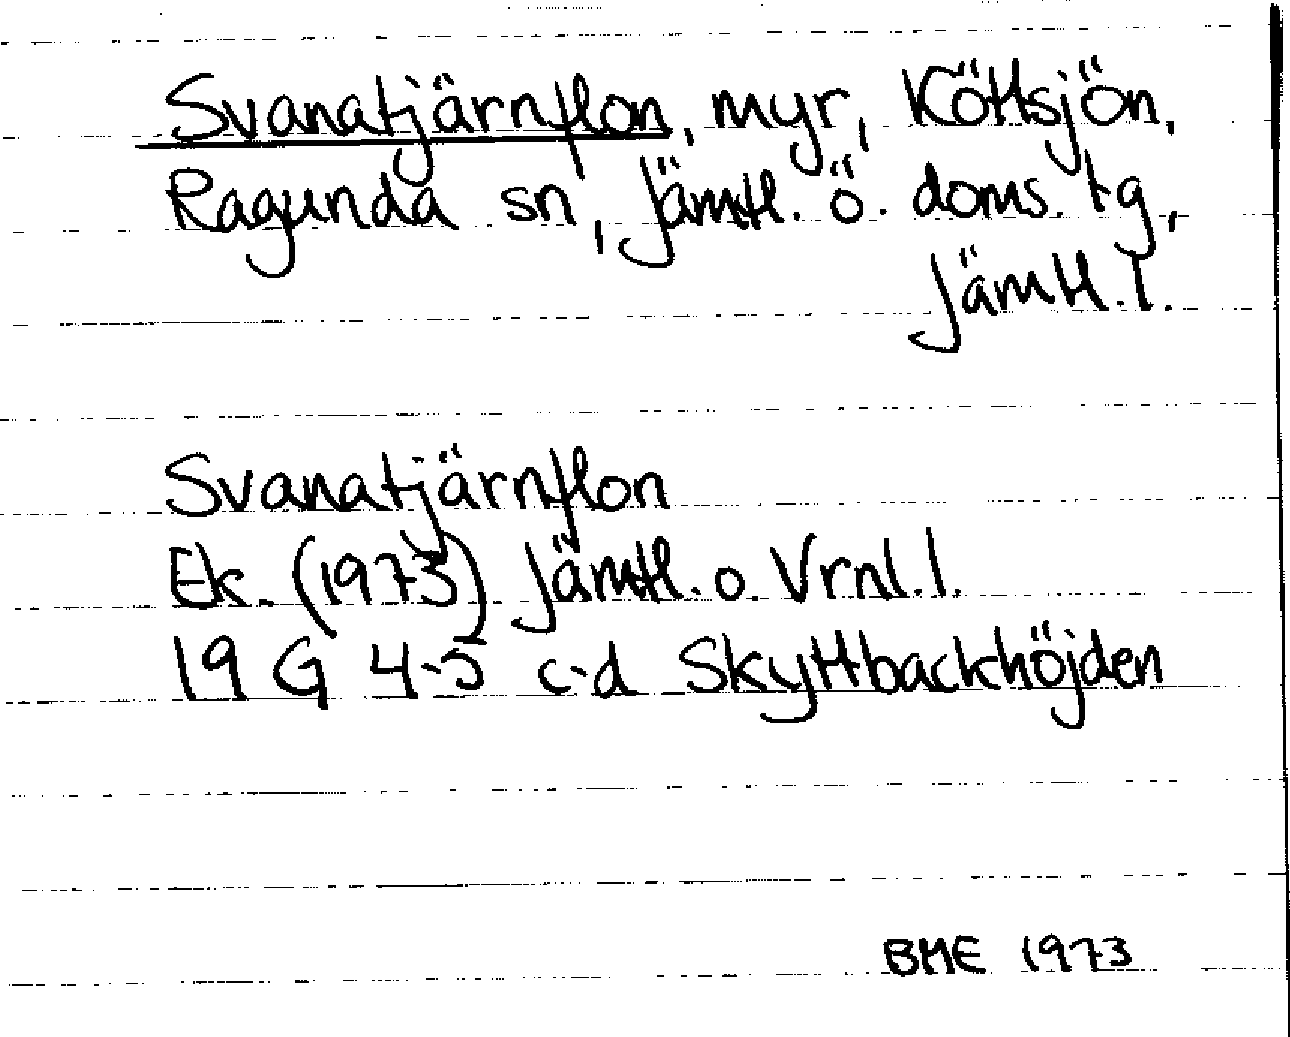 Svanatjärnflon, myr, Köttsjön,
Ragunda sn, Jämtl. ö. doms. tg,
Jämtl. l.
Svanatjärnflon
Ek. (1973) Jämtl. o. Vrnl. l.
19 G 4-5 c-d Skyttbackhöjden
BME 1973